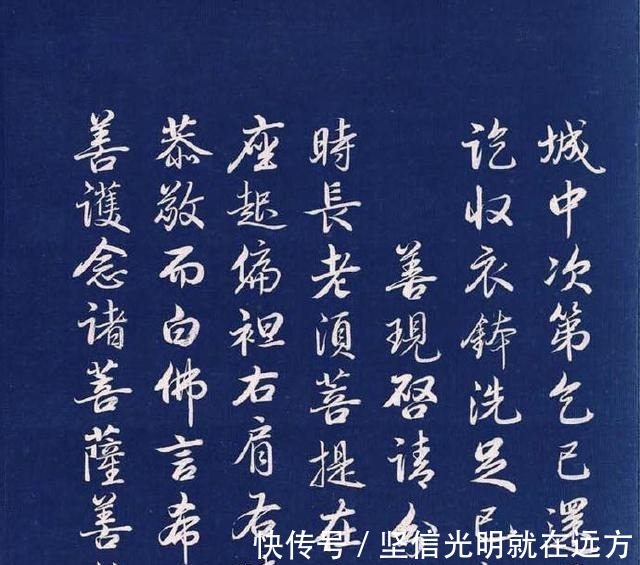 城中次第乞已還
訖收衣鉢洗足已
善現啓請分
時長老須菩提在
座起偏袒右肩右
恭敬而白佛言希
善護念諸菩薩善
快传号 / 坚信光明就在远方